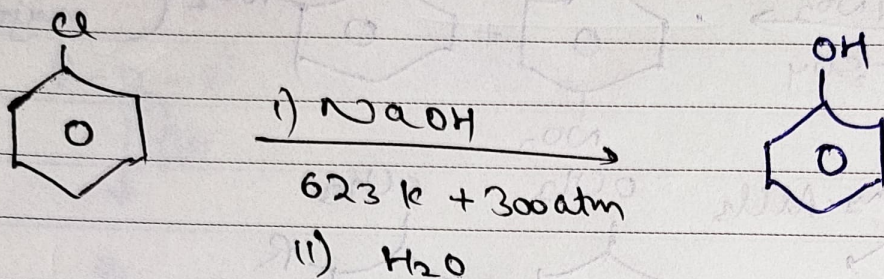 Cl
OH
i) NaOH
623 K + 300 atm
(ii) H2O